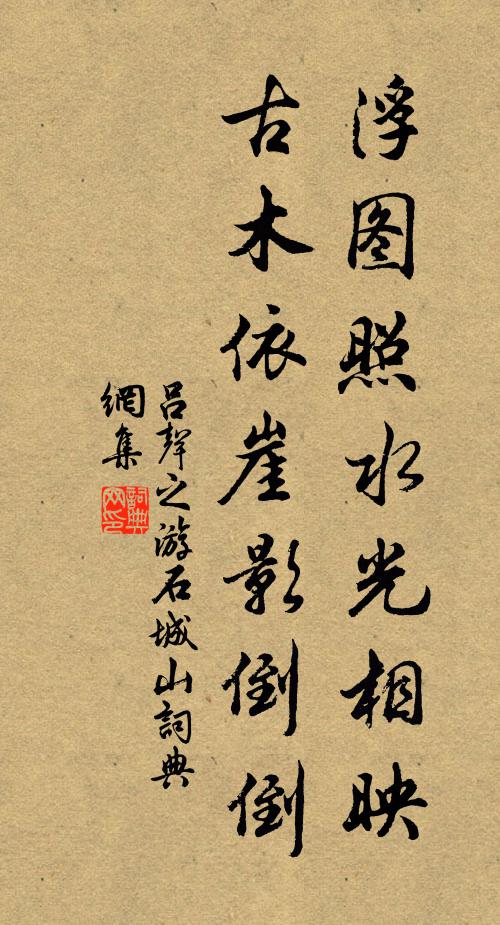 浮图照水光相映
古木依崖影倒倒
吕声之游石城山詞典
網集
詞典
网印